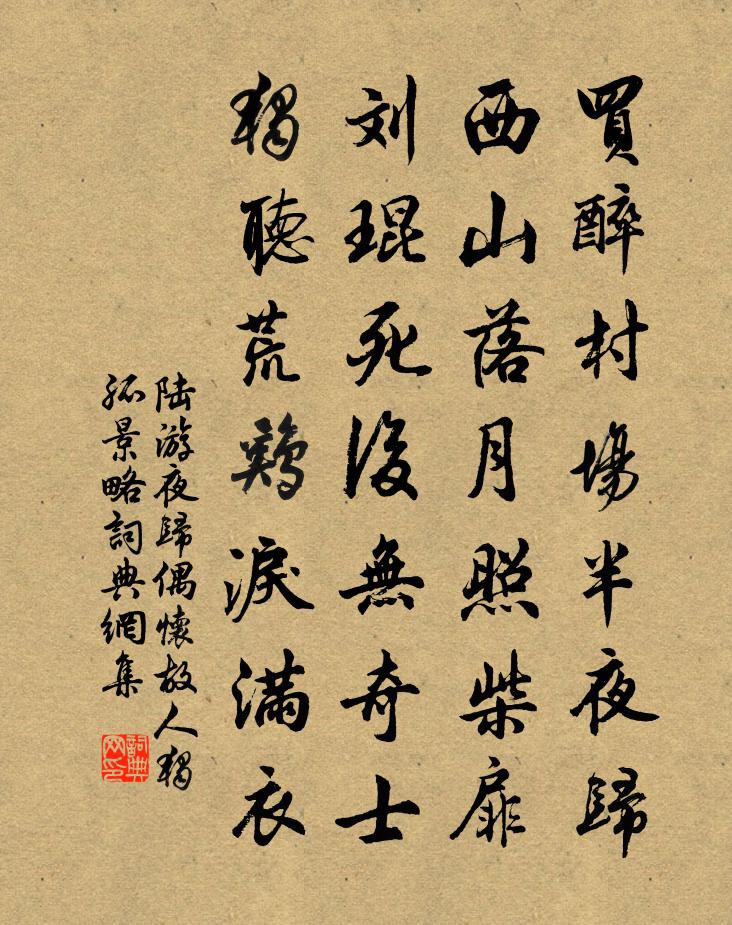 買醉村場半夜歸
西山落月照柴扉
刘琨死後無奇士
獨聽荒鷄淚滿衣
陆游夜歸偶懷故人獨
孤景略詞典網集
詞典
网印